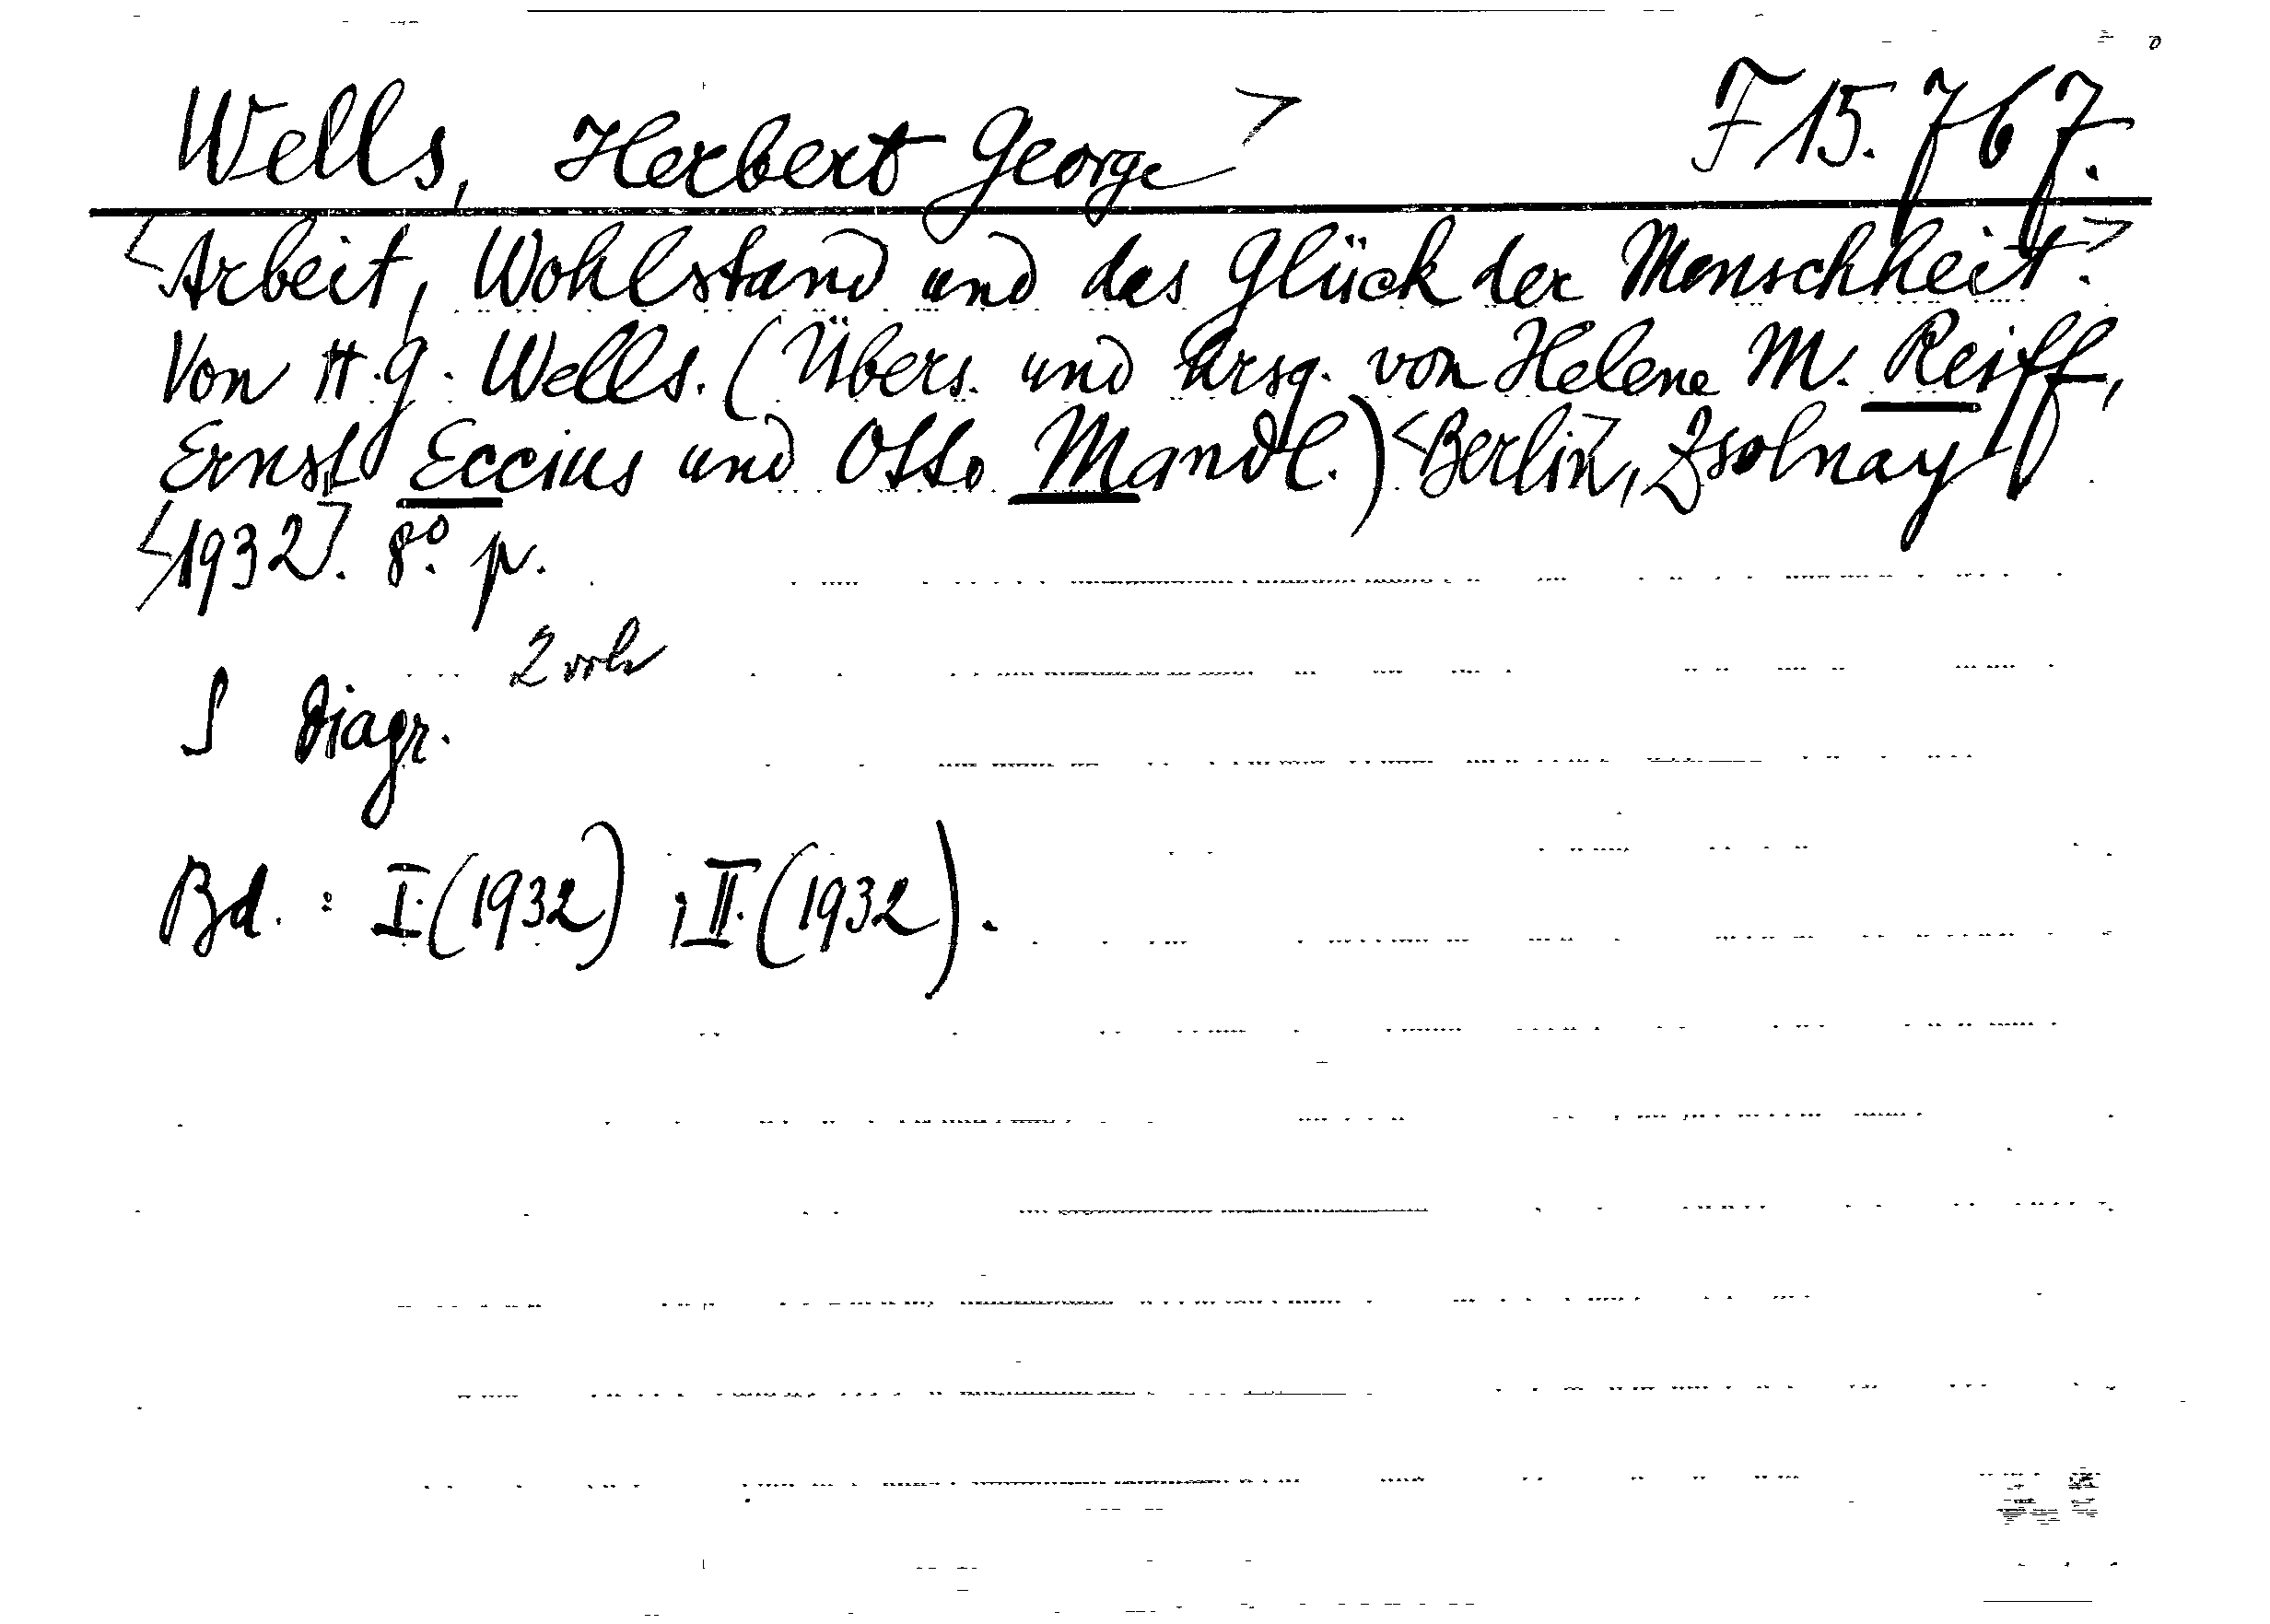 Wells, Herbert George> F 15.767.
<Arbeit, Wohlstand und das Glück der Menschheit.>
Von H.G. Wells. (Übers. und hrsg. von Helene M. Reiff,
Ernst Eccius und Otto Mandl.) <Berlin>, Zsolnay
<1932>. 8°. p.
2 vols
S Diagr.
Bd. : I.(1932) ; II.(1932).